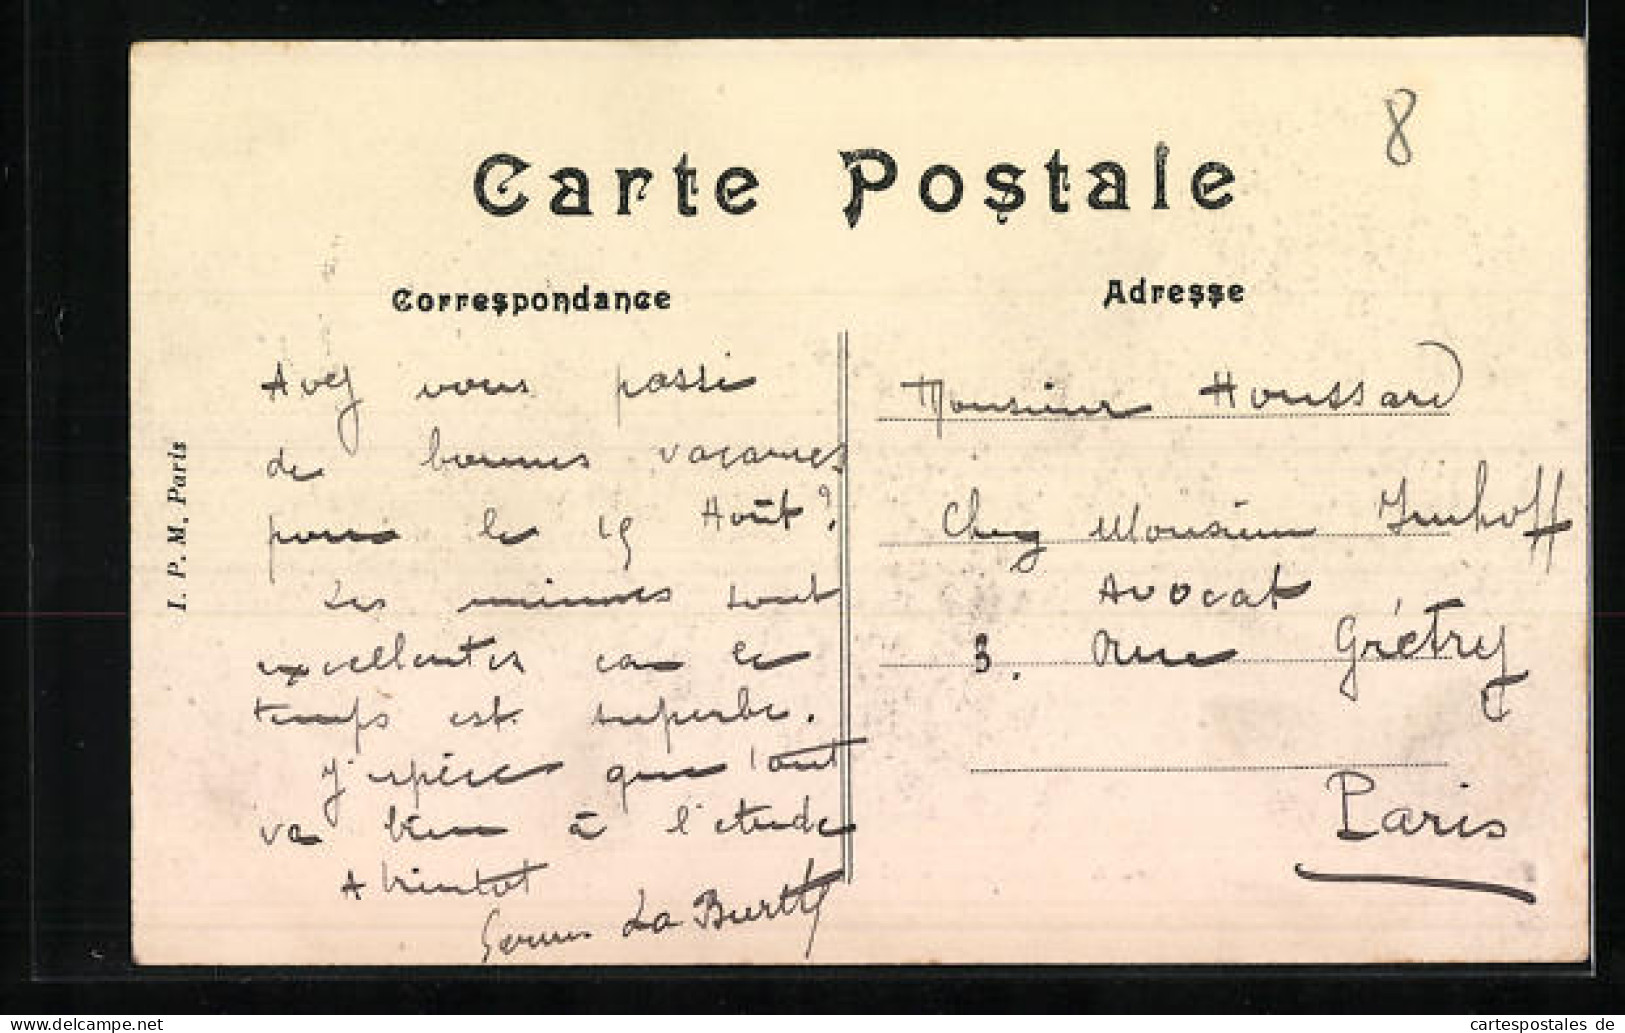 8
Carte Postale
Correspondance
Adresse
Avez vous passé
de bonnes vacances
pour le 15 Août ?
Les miennes sont
excellentes car le
temps est superbe.
J'espère que tout
va bien à l'étude
A bientot
La
Monsieur Houssard
Chez Monsieur Imhoff
Avocat
3. Rue Grétry
Paris
I. P. M, Paris
cartespostales de